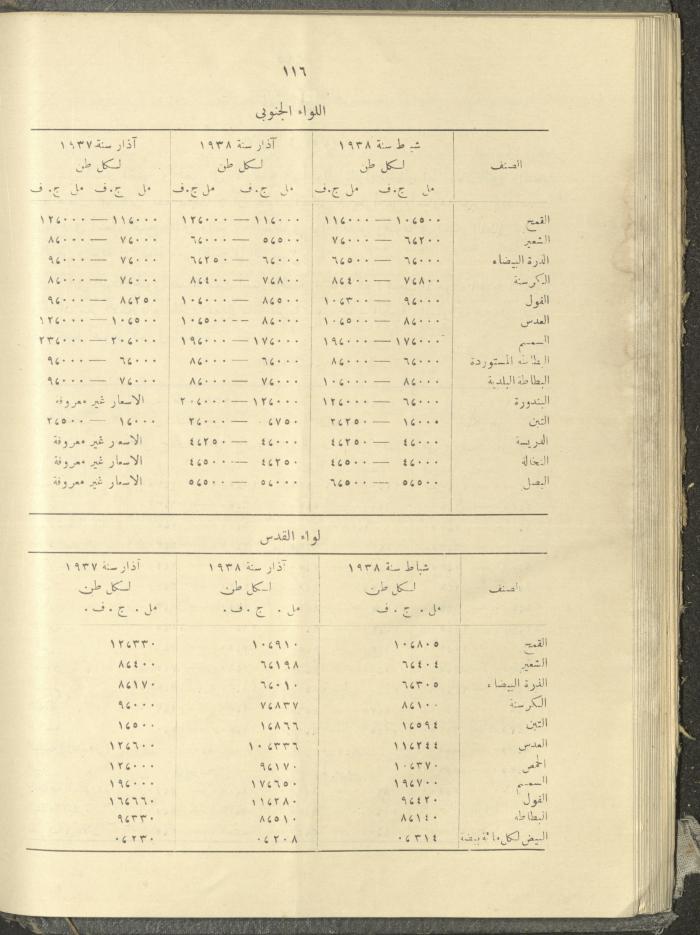 ١١٦
اللواء الجنوبي
الصنف شباط سنة ١٩٣٨ آذار سنة ١٩٣٨ آذار سنة ١٩٣٧
لكل طن لكل طن لكل طن
مل ج.ف مل ج.ف مل ج.ف مل ج.ف مل ج.ف مل ج.ف
القمح ١٠٤٥٠٠ — ١١٤٠٠٠ ١١٤٠٠٠ — ١٢٤٠٠٠ ١١٤٠٠٠ — ١٢٤٠٠٠
الشعير ٦٤٢٠٠ — ٧٤٠٠٠ ٥٤٥٠٠ — ٦٤٠٠٠ ٧٤٠٠٠ — ٨٤٠٠٠
الذرة البيضاء ٦٤٠٠٠ — ٦٤٥٠٠ ٦٤٠٠٠ — ٦٤٢٥٠ ٧٤٠٠٠ — ٩٤٠٠٠
الكرسنة ٧٤٨٠٠ — ٨٤٤٠٠ ٧٤٨٠٠ — ٨٤٤٠٠ ٧٤٠٠٠ — ٨٤٠٠٠
الفول ٩٤٠٠٠ — ١٠٤٣٠٠ ٨٤٥٠٠ — ١٠٤٠٠٠ ٨٤٢٥٠ — ٩٤٠٠٠
العدس ٨٤٠٠٠ — ١٠٤٥٠٠ ٨٤٠٠٠ — ١٠٤٥٠٠ ١٠٤٥٠٠ — ١٢٤٠٠٠
السمسم ١٧٤٠٠٠ — ١٩٤٠٠٠ ١٧٤٠٠٠ — ١٩٤٠٠٠ ٢٠٤٠٠٠ — ٢٣٤٠٠٠
البطاطه المستوردة ٦٤٠٠٠ — ٨٤٠٠٠ ٦٤٠٠٠ — ٨٤٠٠٠ ٦٤٠٠٠ — ٩٤٠٠٠
البطاطة البلدية ٨٤٠٠٠ — ١٠٤٠٠٠ ٧٤٠٠٠ — ٨٤٠٠٠ ٧٤٠٠٠ — ٩٤٠٠٠
البندورة ٦٤٠٠٠ — ١٢٤٠٠٠ ١٢٤٠٠٠ — ٢٠٤٠٠٠ الاسعار غير معروفة
التبن ١٤٠٠٠ — ٢٤٢٥٠ ٤٧٥٠ — ٢٤٠٠٠ ١٤٠٠٠ — ٢٤٥٠٠
الدريسة ٤٤٠٠٠ — ٤٤٢٥٠ ٤٤٠٠٠ — ٤٤٢٥٠ الاسعار غير معروفة
النخالة ٤٤٠٠٠ — ٤٤٥٠٠ ٤٤٢٥٠ — ٤٤٥٠٠ الاسعار غير معروفة
البصل ٥٤٥٠٠ — ٦٤٥٠٠ ٥٤٠٠٠ — ٥٤٥٠٠ الاسعار غير معروفة
لواء القدس
الصنف شباط سنة ١٩٣٨ آذار سنة ١٩٣٨ آذار سنة ١٩٣٧
لكل طن لكل طن لكل طن
مل . ج . ف . مل . ج . ف . مل . ج . ف .
القمح ١٠٤٨٠٥ ١٠٤٩١٠ ١٢٤٣٣٠
الشعير ٦٤٤٠٤ ٦٤١٩٨ ٨٤٤٠٠
الذرة البيضاء ٦٤٣٠٥ ٦٤٠١٠ ٨٤١٧٠
الكرسنة ٨٤١٠٠ ٧٤٨٣٧ ٩٤٠٠٠
التبن ١٤٥٩٤ ١٤٨٦٦ ١٤٥٠٠
العدس ١١٤٢٤٤ ١٠٤٣٣٦ ١٢٤٦٠٠
الحمص ١٠٤٣٧٠ ٩٤١٧٠ ١٢٤٠٠٠
السمسم ١٩٤٧٠٠ ١٧٤٦٥٠ ١٩٤٠٠٠
الفول ٩٤٤٢٠ ١١٤٢٨٠ ١٦٤٦٦٠
البطاطه ٨٤١٤٠ ٨٤٥١٠ ٩٤٣٣٠
البيض لكل مائة بيضة ٠٤٣١٤ ٠٤٢٠٨ ٠٤٢٣٠